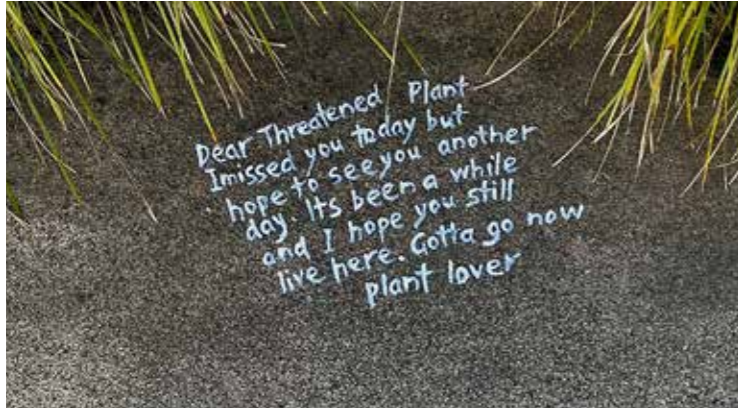 Dear Threatened Plant
I missed you today but
hope to see you another
day. Its been a while
and I hope you still
live here. Gotta go now
plant lover